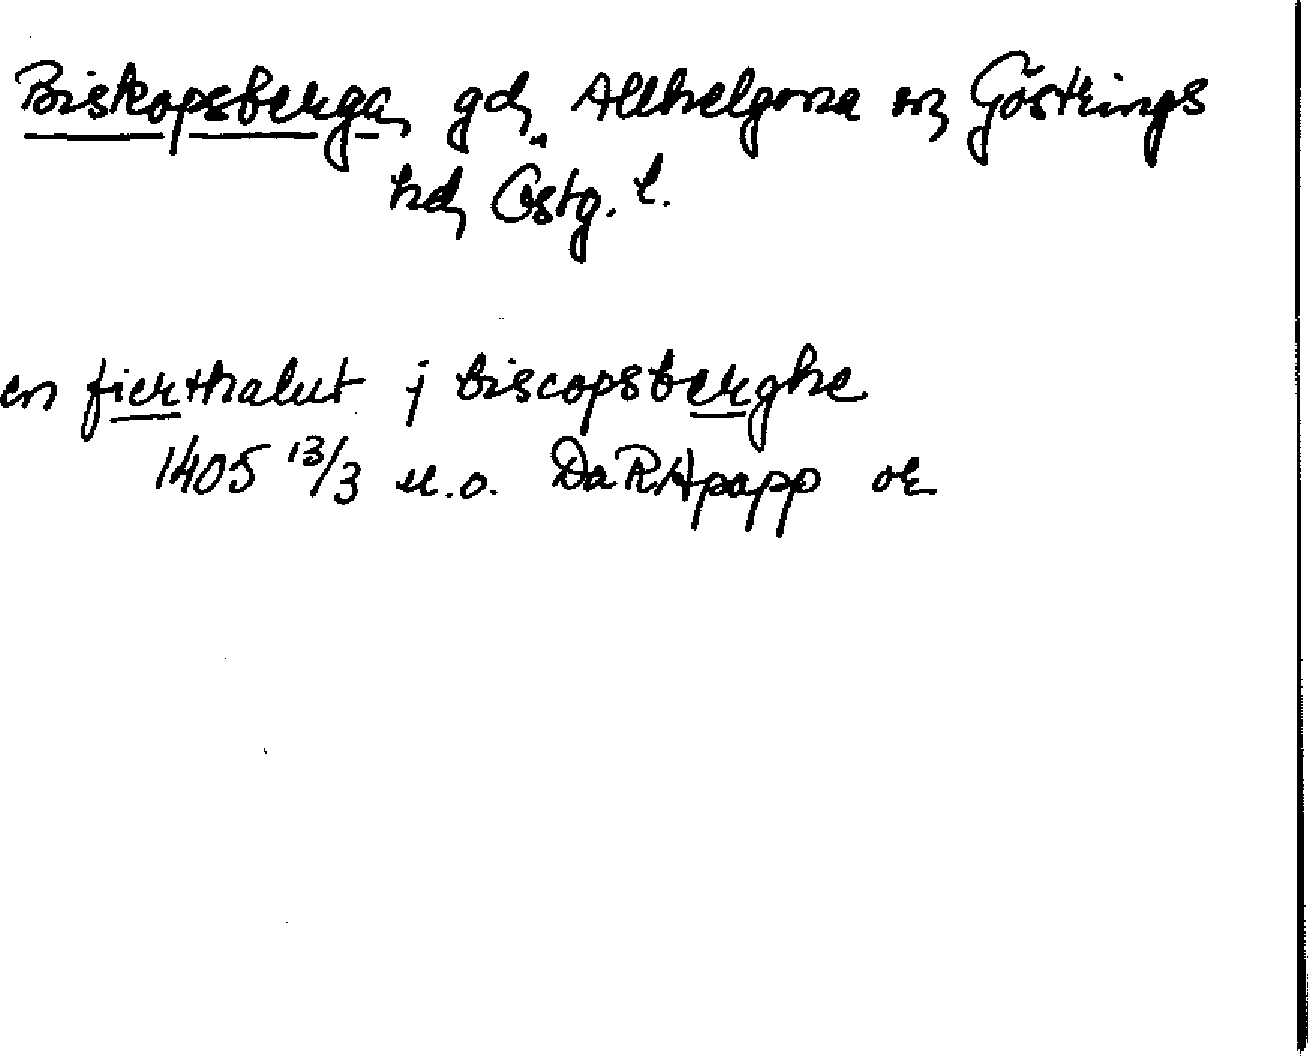 Biskopsberga, gd, Allhelgona sn, Göstrings
hd, Östg. l.
en fierthalut j biscopsberghe
1405 13/3 u.o. DaRApapp or